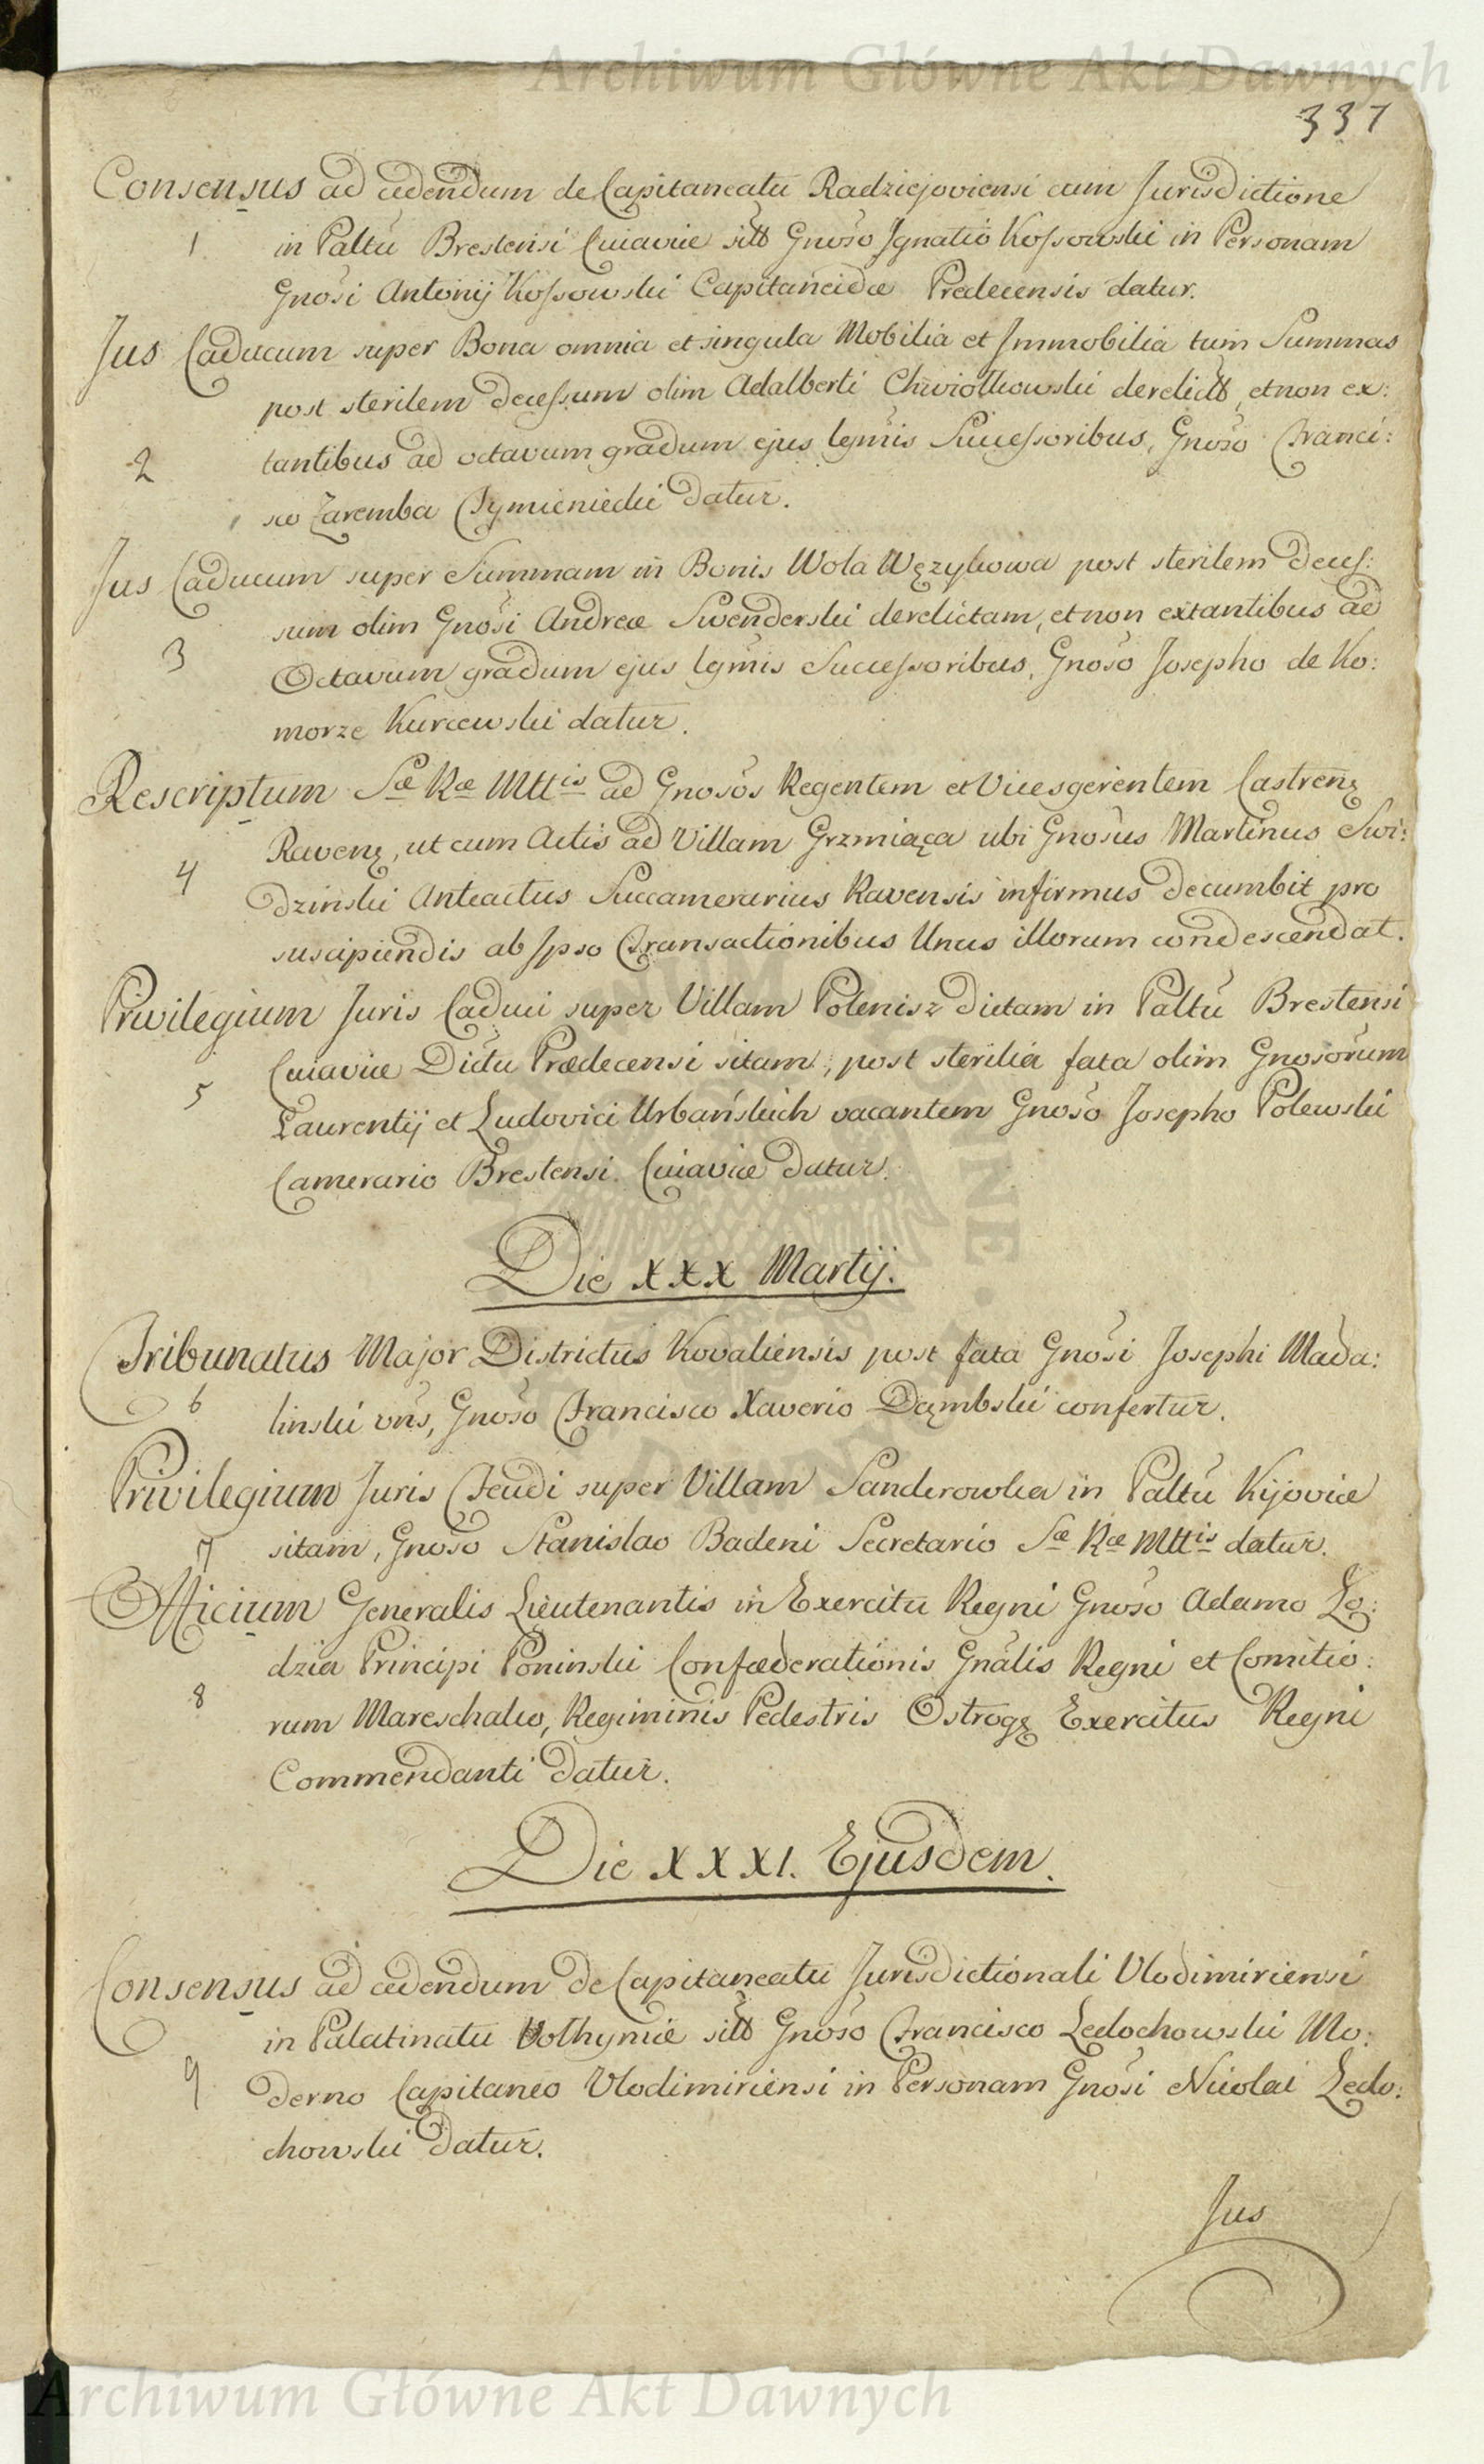 Archiwum Główne Akt Dawnych
337
Consensus ad cedendum de Capitaneatu Radziejoviensi cum Jurisdictione
1 in Paltu Brestensi Cuiaviæ sitô Gnoso Ignatio Kossowski in Personam
Gnosi Antonij Kossowski Capitaneidæ Predecensis datur.
Jus Caducum super Bona omnia et singula Mobilia et Immobilia tum Summas
post sterilem decessum olim Adalberti Chwiołkowski derelictô, et non ex:
2 tantibus ad octavum gradum ejus lgmis Successoribus, Gnoso Franci:
sco Zaremba Tymieniecki datur.
Jus Caducum super Summam in Bonis Wola Węzykowa post sterilem deces:
sum olim Gnosi Andreæ Swenderski derelictam, et non extantibus ad
3 Octavum gradum ejus lgmis Successoribus, Gnoso Josepho de Ko:
morze Kurcewski datur.
Rescriptum Sæ Ræ Mttis ad Gnosos Regentem et Vicesgerentem Castrenę
Ravenę, ut cum Actis ad Villam Grzmiąca ubi Gnosus Martinus Swi:
4 dzinski Anteactus Succamerarius Ravensis infirmus decumbit pro
suscipiendis ab Ipso Transactionibus Unus illorum condescendat.
Privilegium Juris Caduci super Villam Polenisz dictam in Paltu Brestensi
Cuiaviæ Dictu Prædecensi sitam, post sterilia fata olim Gnosorum
5 Laurentij et Ludovici Urbańskich vacantem Gnoso Josepho Polewski
Camerario Brestensi Cuiaviæ datur.
Die XXX Martij.
Tribunatus Major Districtus Kovaliensis post fata Gnosi Josephi Mada:
6 linski vns, Gnoso Francisco Xaverio Dąmbski confertur.
Privilegium Juris Feudi super Villam Sanderowka in Paltu Kijoviæ
7 sitam, Gnoso Stanislao Badeni Secretario Sæ Ræ Mttis datur.
Officium Generalis Lieutenantis in Exercitu Regni Gnoso Adamo Lo:
dzia Principi Poninski Confœderationis Gnalis Regni et Comitio:
8 rum Mareschalco, Regiminis Pedestris Ostrogę Exercitus Regni
Commendanti datur.
Die XXXI. Ejusdem.
Consensus ad cedendum de Capitaneatu Jurisdictionali Vlodimiriensi
in Palatinatu Volhyniæ sitô Gnoso Francisco Ledochowski Mo:
9 derno Capitaneo Vlodimiriensi in Personam Gnosi Nicolai Ledo:
chowski datur.
Jus
Archiwum Główne Akt Dawnych